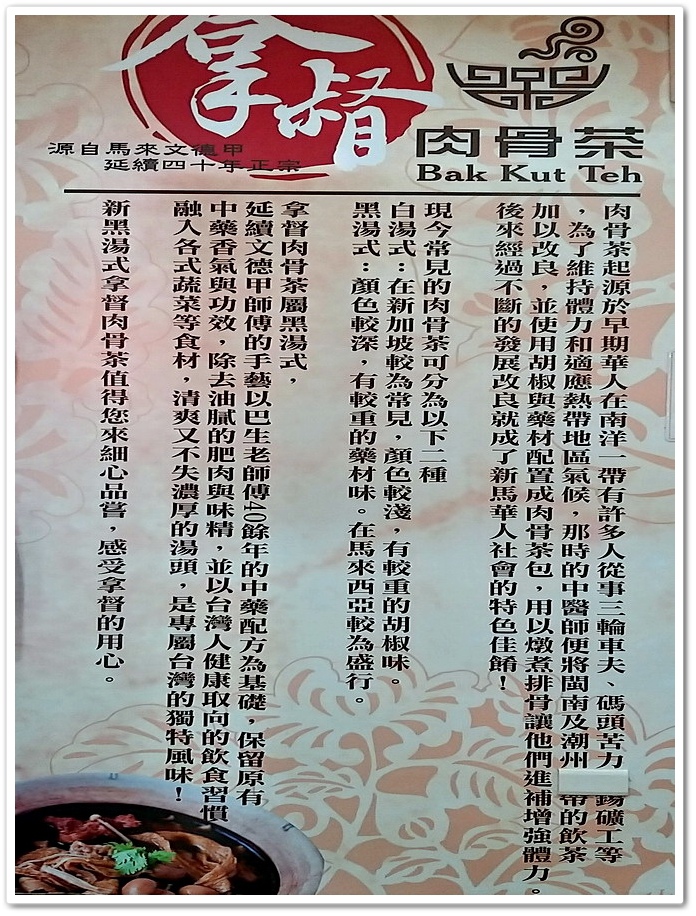 拿督
肉骨茶
Bak Kut Teh
源自馬來文德甲
延續四十年正宗
肉骨茶起源於早期華人在南洋一帶有許多人從事三輪車夫、碼頭苦力 錫礦工等
，為了維持體力和適應熱帶地區氣候，那時的中醫師便將閩南及潮州 帶的飲茶
加以改良，並使用胡椒與藥材配置成肉骨茶包，用以燉煮排骨讓他們進補增強體力。
後來經過不斷的發展改良就成了新馬華人社會的特色佳餚！
現今常見的肉骨茶可分為以下二種
白湯式：在新加坡較為常見，顏色較淺，有較重的胡椒味。
黑湯式：顏色較深，有較重的藥材味。在馬來西亞較為盛行。
拿督肉骨茶屬黑湯式，
延續文德甲師傅的手藝以巴生老師傅40餘年的中藥配方為基礎，保留原有
中藥香氣與功效，除去油膩的肥肉與味精，並以台灣人健康取向的飲食習慣
融入各式蔬菜等食材，清爽又不失濃厚的湯頭，是專屬台灣的獨特風味！
新黑湯式拿督肉骨茶值得您來細心品嘗，感受拿督的用心。